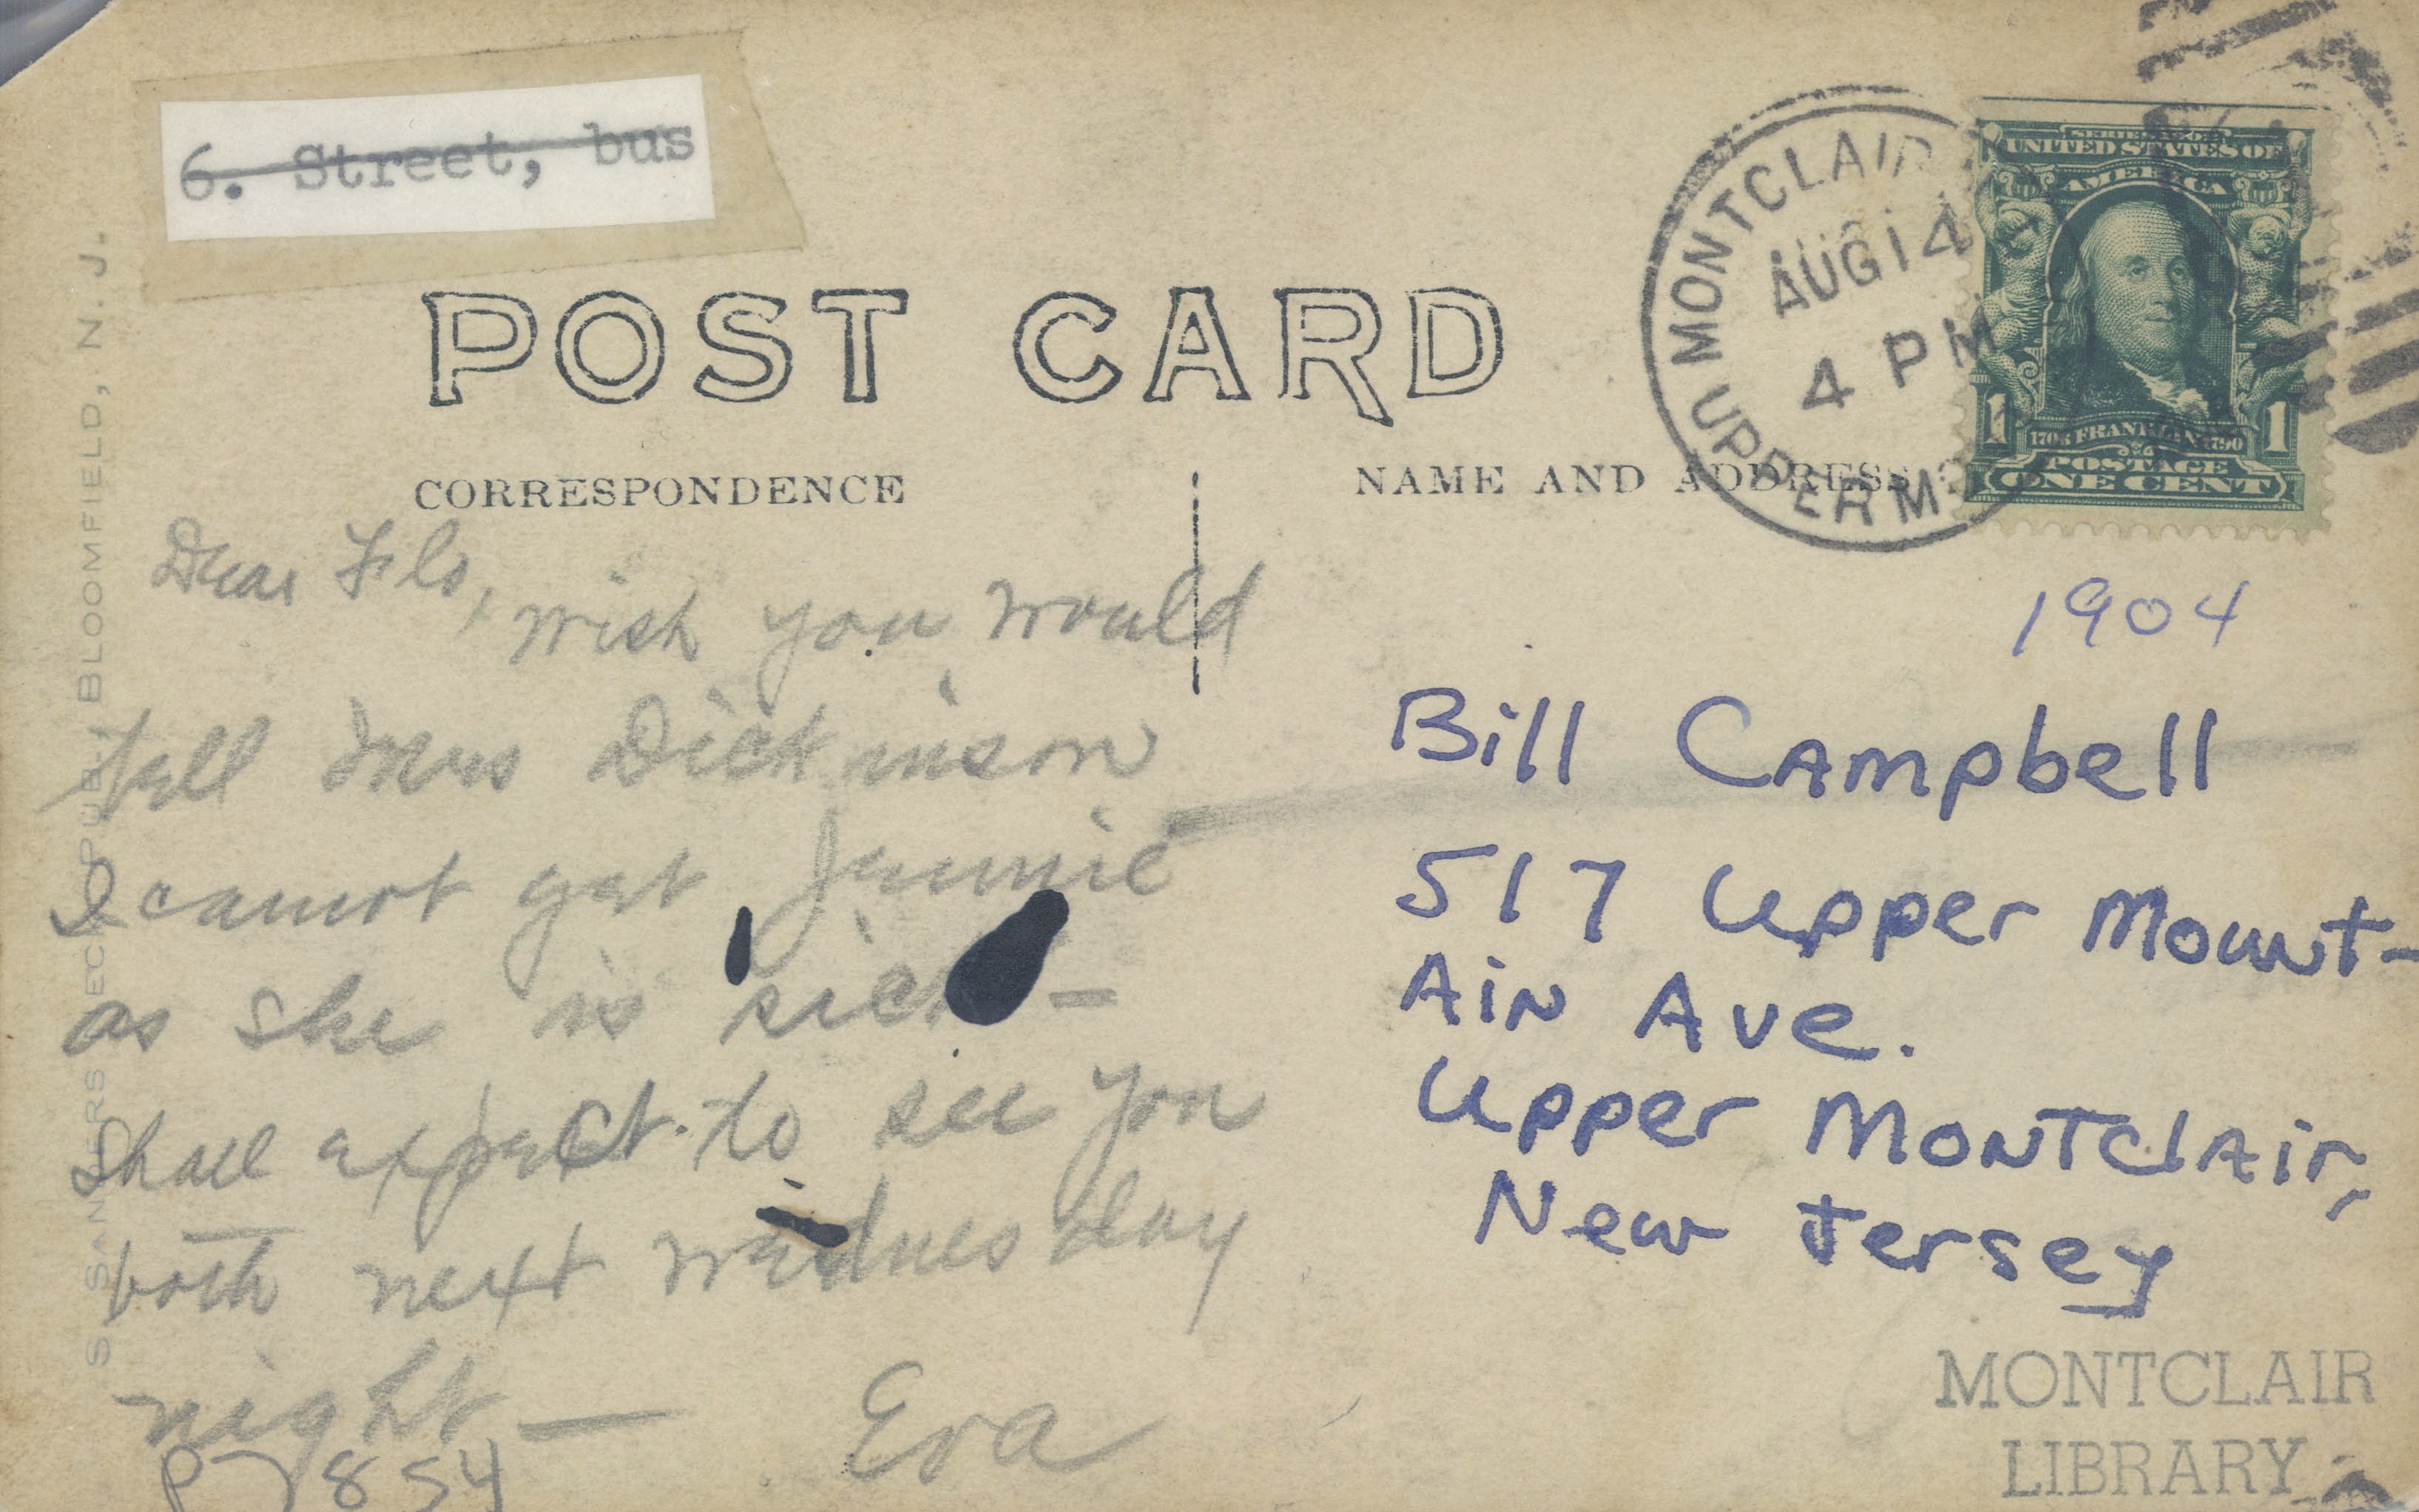 6. Street, bus
POST CARD
CORRESPONDENCE
NAME AND ADDRESS
MONTCLAIR
AUG 14
4 PM
UPPER M
SERIES OF
UNITED STATES OF
AMERICA
1 1
FRANKLIN 1790
POSTAGE
ONE CENT
1904
Dear Flo,
wish you would
tell Mrs Dickinson
I cannot get Jennie
as she is sick —
Shall expect to see you
both next Wednesday
night —
Eva
P7854
Bill Campbell
517 Upper Mount-
Ain Ave.
Upper Montclair,
New Jersey
MONTCLAIR
LIBRARY
PUB., BLOOMFIELD, N. J.